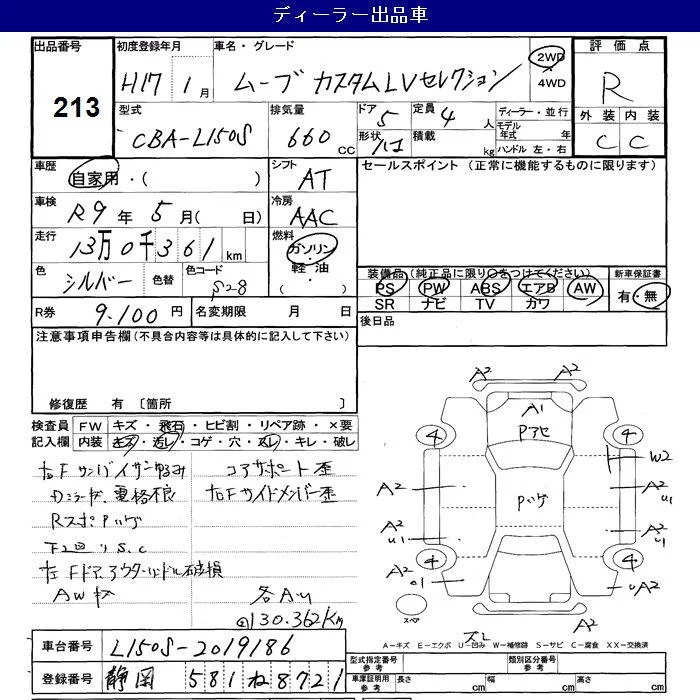 ディーラー出品車
出品番号
213
初度登録年月
H17年 1月
車名・グレード
ムーブ カスタムLVセレクション
2WD
4WD
評価点
R
外装 内装
C C
型式
CBA-L150S
排気量
660 CC
ドア
5
定員
4人
形状
積載
kg
ディーラー・並行
モデル年式 年
ハンドル 左・右
車歴
自家用・( )
シフト
AT
セールスポイント (正常に機能するものに限ります)
車検
R9年 5月( 日)
冷房
AAC
走行
13万0千361km
燃料
ガソリン・
軽油・
( )
色
シルバー
色替
色コード
S28
装備品(純正品に限り○をつけてください)
PS PW ABS エアB AW
SR ナビ TV カワ
新車保証書
有・無
R券
9.100円
名変期限 月 日
後日品
注意事項申告欄(不具合内容等は具体的に記入して下さい)
修復歴 有 〔箇所 〕
検査員記入欄
FW キズ・飛石・ヒビ割・リペア跡・×要
内装 キズ・汚レ・コゲ・穴・スレ・キレ・破レ
右Fサンバイザーゆるみ
コアサポート歪
Dミラーキズ、電格不良
右Fサイドメンバー歪
RスポPハゲ
左Fドアアウターハンドル破損
AWキズ
各AU
130.362Km
A2
A2 A2
A1
Pアセ
4 4
W2
Pハゲ
A2 A2
U1
A2 A2
U1 U1
4 4
A2
UA2
A2
スペア
スレ
A=キズ E=エクボ U=凹み W=補修跡 S=サビ C=腐食 XX=交換済
車台番号
L150S-2019186
登録番号
静岡 581 ね 8721
型式指定番号 参考
類別区分番号 参考
車庫証明用 参考
長さ cm
幅 cm
高さ cm